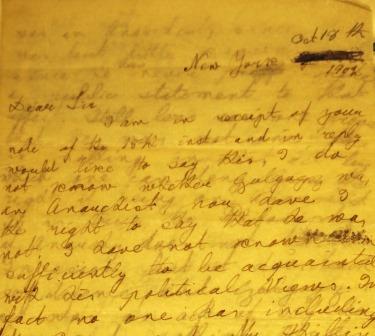 Oct 18th
New York
1902
Dear Sir
I am in receipt of your
note of the 15th inst and in reply
would like to say this, I do
not know whether Czolgosz was
an Anarchist, nor have I
the right to say that he was
not. I have not known him
sufficiently to be acquainted
with his political views. In
fact no one has including